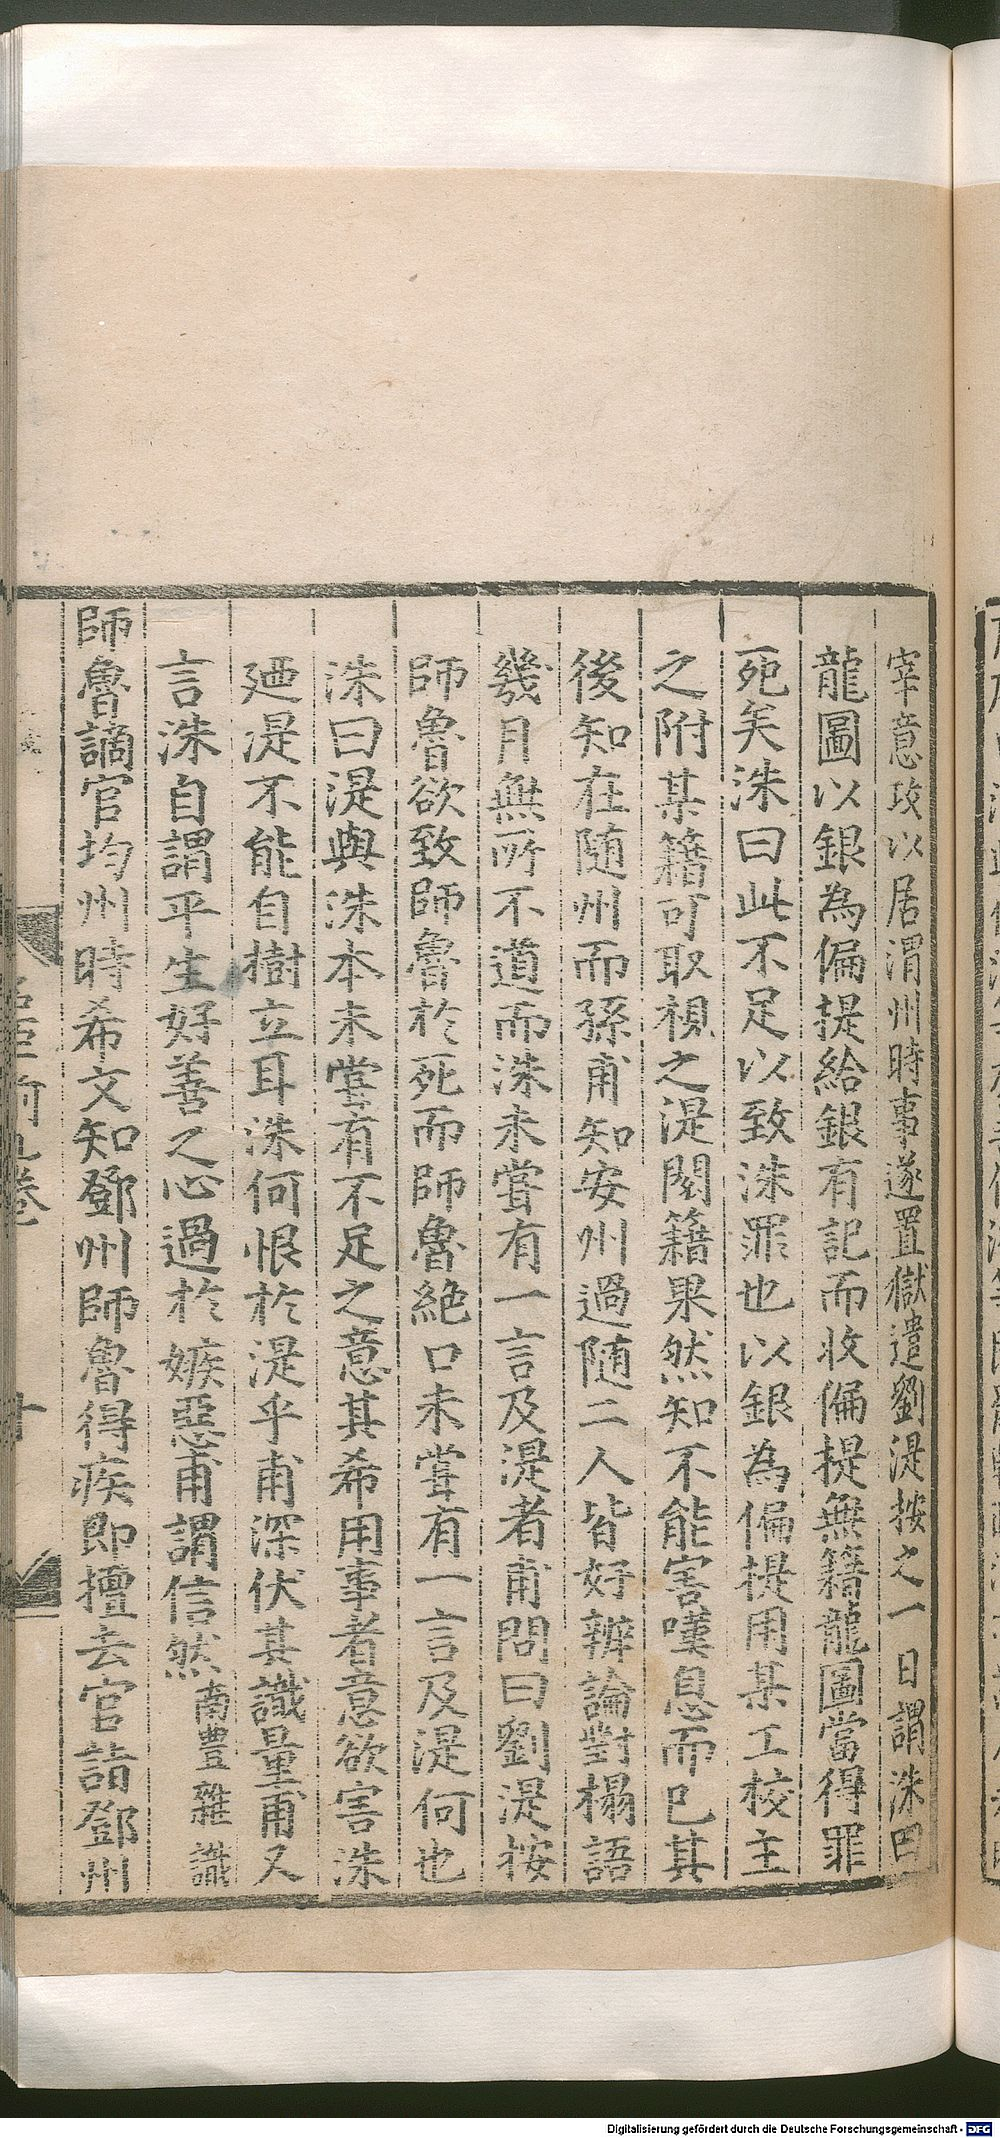 宰意攻以居渭州時事遂置獄遣劉湜按之一日謂洙曰
龍圖以銀為偏提給銀有記而收偏提無籍龍圖當得罪
死矣洙曰此不足以致洙罪也以銀為偏提用某工校主
之附某籍可取視之湜閱籍果然知不能害嘆息而已其
後知在随州而孫甫知安州過随二人皆好辦論對榻語
幾月無所不道而洙未嘗有一言及湜者甫問曰劉湜按
師魯欲致師魯於死而師魯絶口未嘗有一言及湜何也
洙曰湜與洙本未嘗有不足之意其希用事者意欲害洙
廼湜不能自樹立耳洙何恨於湜乎甫深伏其識量甫又
言洙自謂平生好善之心過於嫉惡甫謂信然南豐雜識
師魯謫官均州時希文知鄧州師魯得疾即擅去官詣鄧州
名臣前九卷
十
Digitalisierung gefördert durch die Deutsche Forschungsgemeinschaft - DFG